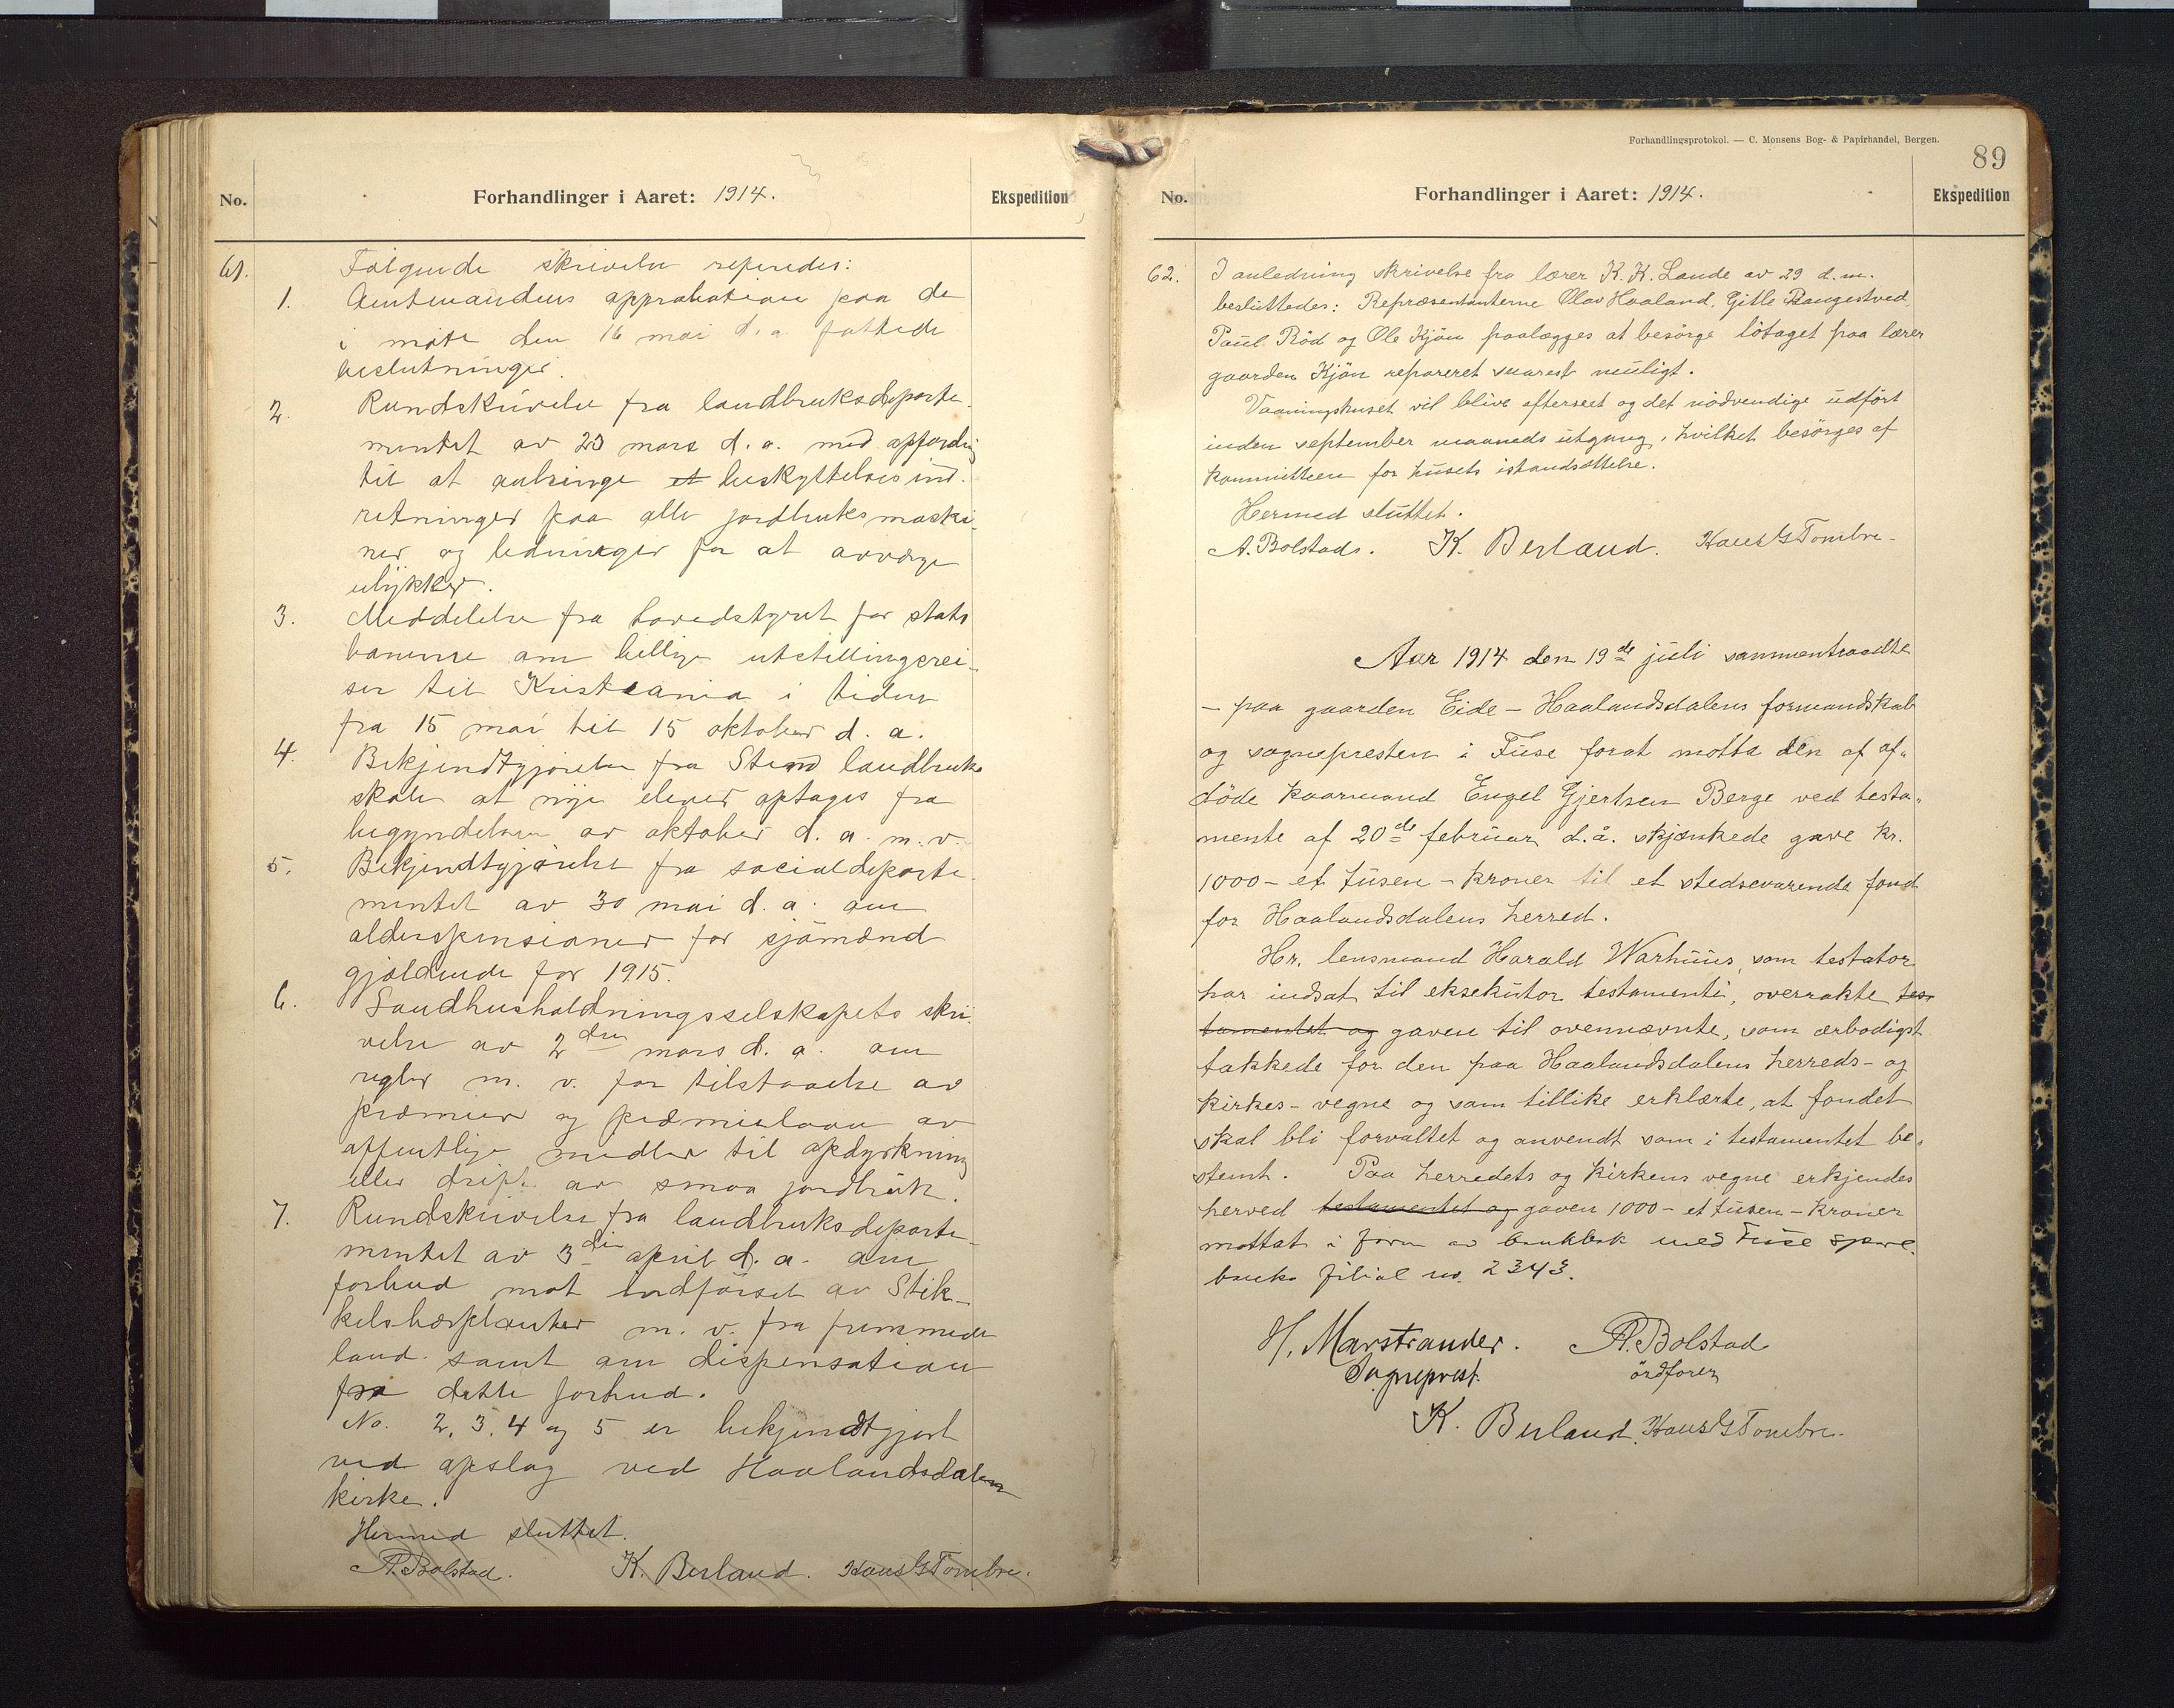 No. Forhandlinger i Aaret: 1914. Ekspedition
61. Følgende skrivelser referedes:
1. Amtmandens approbation paa de
i møte den 16 mai d. a. fattede
beslutninger.
2. Rundskrivelse fra landbruksdeparte-
mentet av 23 mars d. a. med opfordring
til at anbringe et beskyttelsesind-
retninger paa alle jordbruksmaski-
ner og ledninger for at avværge
ulykker.
3. Meddelelse fra hovedstyret for stats
banerne om billige utstillingsrei-
ser til Kristiania i tiden
fra 15 mai til 15 oktober d. a.
4. Bekjendtgjørelse fra Stend landbruks
skole at nye elever optages fra
begyndelsen av oktober d. a. m. v.
5. Bekjendtgjørelse fra socialdeparte-
mentet av 30 mai d. a. om
alderspensioner for sjømænd
gjældende for 1915.
6. Landhusholdningsselskapets skri-
velse av 2den mars d. a. om
regler m. v. for tilstaaelse av
præmier og præmielaan av
offentlige midler til opdyrkning
eller drift av smaa jordbruk.
7. Rundskrivelse fra landbruksdeparte-
mentet av 3die april d. a. om
forbud mot indførsel av Stik-
kelsbærplanter m. v. fra fremmede
land samt om dispensation
fra dette forbud.
No. 2, 3, 4 og 5 er bekjendtgjort
ved opslag ved Haalandsdalen
kirke.
Hermed sluttet.
A. Bolstad. K. Berland. Hans G Tombre.
Forhandlingsprotokol. — C. Monsens Bog- & Papirhandel, Bergen.
89
No. Forhandlinger i Aaret: 1914. Ekspedition
62. I anledning skrivelse fra lærer K. K. Lande av 29 d. m.
besluttedes: Repræsentanterne Olav Haaland, Gitle Rangestved,
Paul Röd og Ole Kjön paalægges at besörge lötaget paa lærer
gaarden Kjön repareret snarest muligt.
Vaaningshuset vil blive efterseet og det nödvendige udfört
inden september maaneds utgang, hvilket besörges af
kommitteen for husets istandsættelse.
Hermed sluttet.
A. Bolstad. K. Berland. Hans G Tombre.
Aar 1914 den 19de juli sammentraadte
— paa gaarden Eide — Haalandsdalens formandskab
og sognepresten i Fuse forat motta den af af-
döde kaarmand Engel Gjertsen Berge ved testa-
mente af 20de februar d.å. skjænkede gave kr.
1000 — et tusen — kroner til et stedsevarende fond
for Haalandsdalens herred.
Hr. lensmand Harald Warhuus, som testator
har indsat til eksekutor testamenti, overrakte tes-
tamentet og gaven til ovennævnte, som ærbödigst
takkede for den paa Haalandsdalens herreds- og
kirkes- vegne og som tillike erklærte, at fondet
skal bli forvaltet og anvendt som i testamentet be-
stemt. Paa herredets og kirkens vegne erkjendes
herved testamentet og gaven 1000 — et tusen — kroner
mottat i form av bankbok med Fuse spare-
banks filial no. 2343.
H. Marstrander. A. Bolstad
Sogneprest. ordförer
K. Berland. Hans G Tombre.